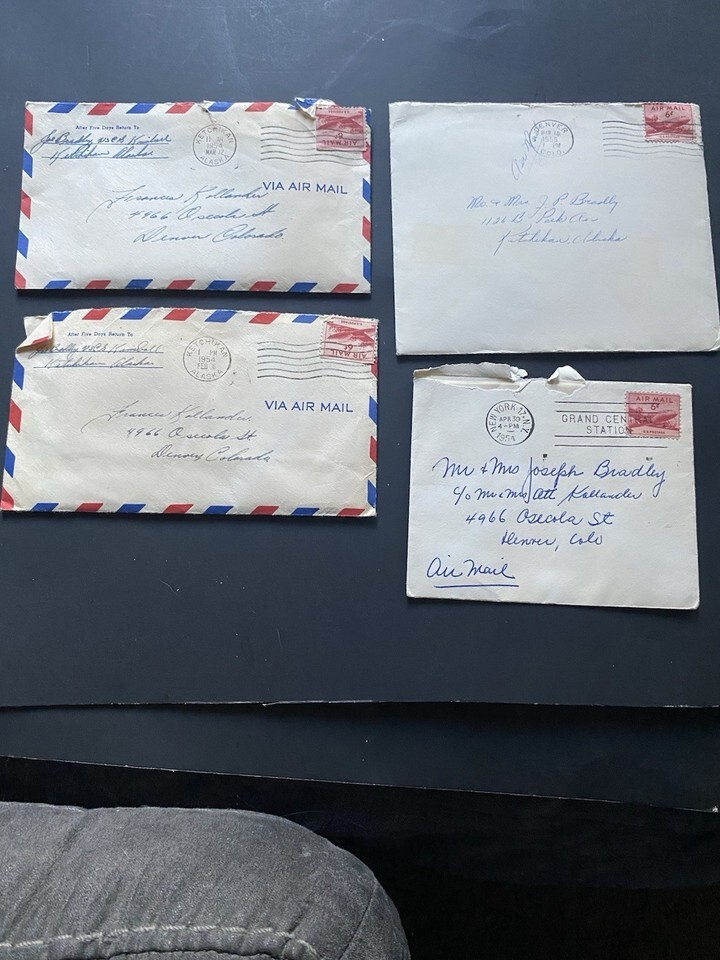 After Five Days Return To
Joe Bradley
Ketchikan Alaska
KETCHIKAN
11 AM
1954
MAR 12
ALASKA
AIR MAIL
6¢
VIA AIR MAIL
Frances Kollander
4966 Osceola St
Denver Colorado
DENVER
1955
PM
COLO.
AIR MAIL
6¢
Air Mail
Mr. & Mrs. J P Bradly
1126 B Park Ave
Ketchikan, Alaska
After Five Days Return To
Ketchikan Alaska
KETCHIKAN
1 PM
1954
FEB
ALASKA
AIR MAIL
6¢
VIA AIR MAIL
Frances Kollander
4966 Osceola St
Denver Colorado
NEW YORK 17, N.Y.
APR 30
4-PM
1954
GRAND CEN
STATION
AIR MAIL
6¢
Mr & Mrs Joseph Bradley
c/o Mr & Mrs Att Kollander
4966 Osecola St
Denver, Colo
Air Mail